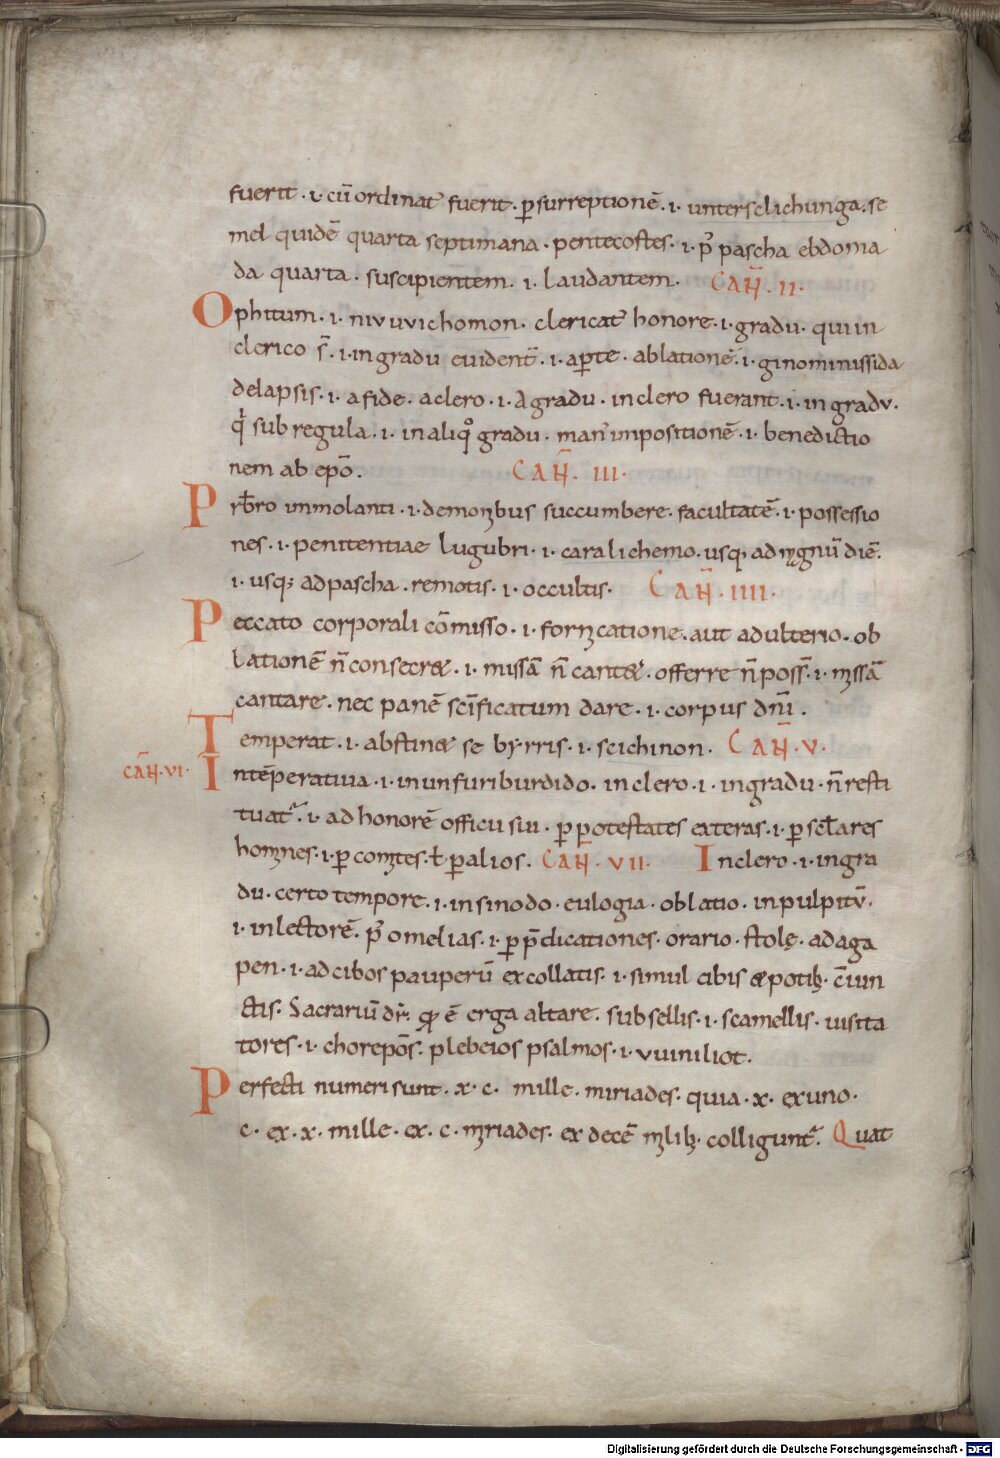 fuerit · i · cū ordinat᷒ fuerit · ꝑ surreptionē · i · unterslichunga · se
mel quidē quarta septimana · pentecostes · i · p᷒ pascha ebdoma
da quarta · suscipientem · i · laudantem · CAN̄ · II ·
Ophitum · i · niuuuichomon · clericat᷒ honore · i · gradu · qui in
clerico s̄ · i · in gradu euident̄ · i · aꝑte · ablationē · i · ginominissida
delapsis · i · a fide · a clero · i · a gradu · in clero fuerant · i · in gradu ·
q sub regula · i · in aliq̊ gradu · man᷒ inpositionē · i · benedictio
nem ab ep̄o · CAN̄ · III ·
Prb̄ro immolanti · i · demonibus succumbere · facultatē · i · possessio
nes · i · penitentiae lugubri · i · caralichemo · usq; ad magnū diē ·
i · usq; ad pascha · remotis · i · occultis · CAN̄ · IIII ·
Peccato corporali cōmisso · i · fornicatione · aut adulterio · ob
lationē n̄ consecr& · i · missā n̄ cant& · offerre n̄ poss̄ · i · missā
cantare · nec panē sc̄ificatum dare · i · corpus dn̄i ·
Temperat · i · abstin& se byrris · i · scichinon · CAN̄ · V ·
CAN̄ · VI · Intēperatiua · i · in unfuriburdido · in clero · i · in gradu · n̄ resti
tuat᷒ · i · ad honorē officii sui · ꝑ ꝑotestates exteras · i · ꝑ sc̄lares
homines · i · ꝑ comites · ł ꝑ alios · CAN̄ · VII · In clero · i · in gra
du · certo tempore · i · in sinodo · eulogia · oblatio · in pulpitū ·
i · in lectorē · p᷒ omelias · i · ꝑ p̄dicationes · orario · stolę · ad aga
pen · i · ad cibos pauperū ex collatis · i · simul cibis & potib; · c̄iun
ctis · Sacrariū dr̄ · qđ ē erga altare · subsellis · i · scamellis · uisita
tores · i · chorepōs · plebeios psalmos · i · uuiniliot ·
Perfecti numeri sunt · x · c · mille · miriades · quia · x · ex uno ·
c · ex · x · mille · ex · c · miriades · ex decē milib; · colligunt᷒ · Quat
Digitalisierung gefördert durch die Deutsche Forschungsgemeinschaft - DFG